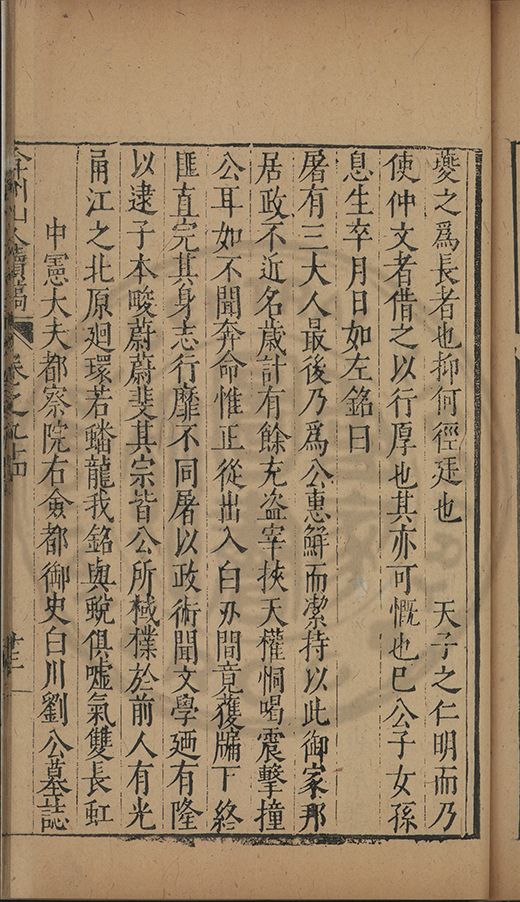 夔之爲長者也抑何徑廷也　　天子之仁明而乃
使仲文者借之以行厚也其亦可慨也巳公子女孫
息生卒月日如左銘曰
屠有三大人最後乃爲公惠鮮而潔持以此御家邦
居政不近名歲計有餘充盗宰挾天權恫喝震擊撞
公耳如不聞奔命惟正從出入白刃間竟獲牖下終
匪直完其身志行靡不同屠以政術聞文學廼有隆
以逮子本畯蔚蔚斐其宗皆公所棫樸於前人有光
甬江之北原廻環若蟠龍我銘與蛻俱噓氣雙長虹
中憲大夫都察院右僉都御史白川劉公墓誌
弇州山人續稿
卷之九十四
廿三